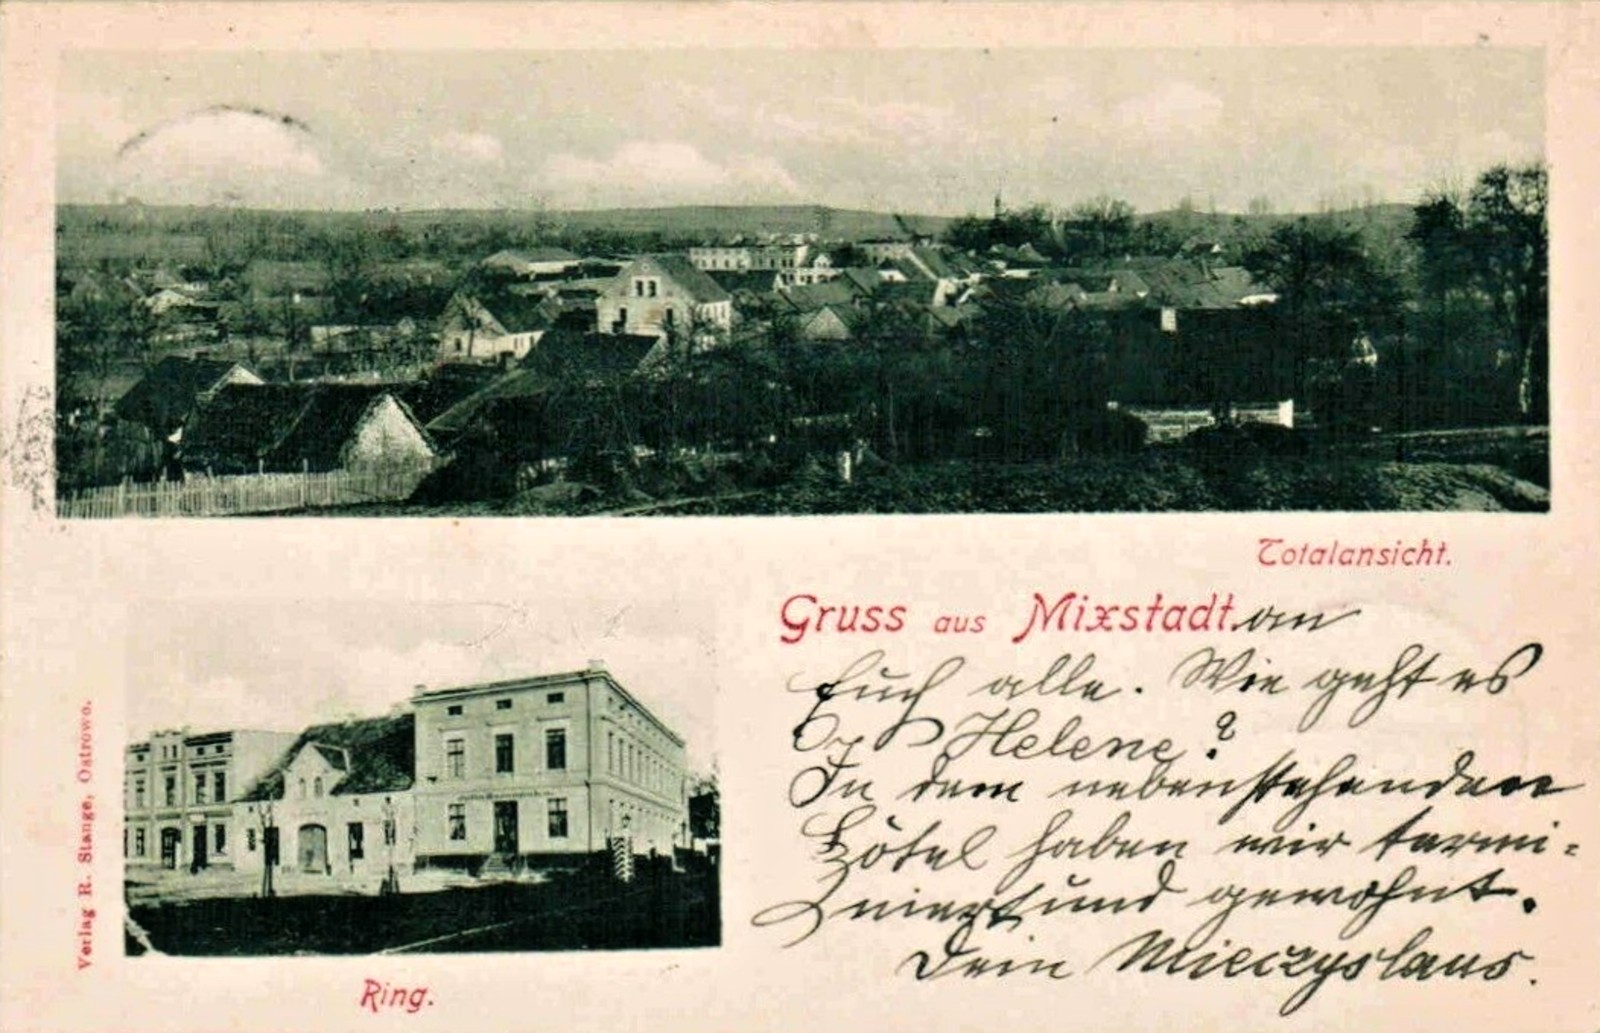 Totalansicht.
Gruss aus Mixstadt. an
Euch alle. Wie geht es
Helene?
In dem nebenstehenden
Hôtel haben wir termi=
niert und gewohnt.
Dein Mieczyslaus.
Ring.
Verlag R. Stange, Ostrowo.